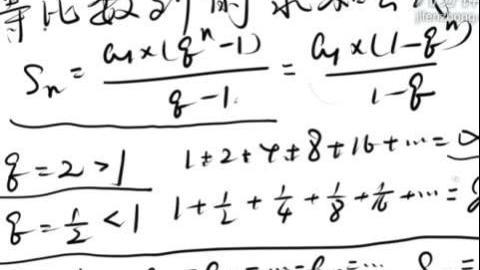 等比数列的求和公
S_n = \frac{a_1×(q^n-1)}{q-1} = \frac{a_1×(1-q^n)}{1-q}
q=2>1 1+2+4+8+16+…=
q=\frac{1}{2}<1 1+\frac{1}{2}+\frac{1}{4}+\frac{1}{8}+\frac{1}{16}+…=